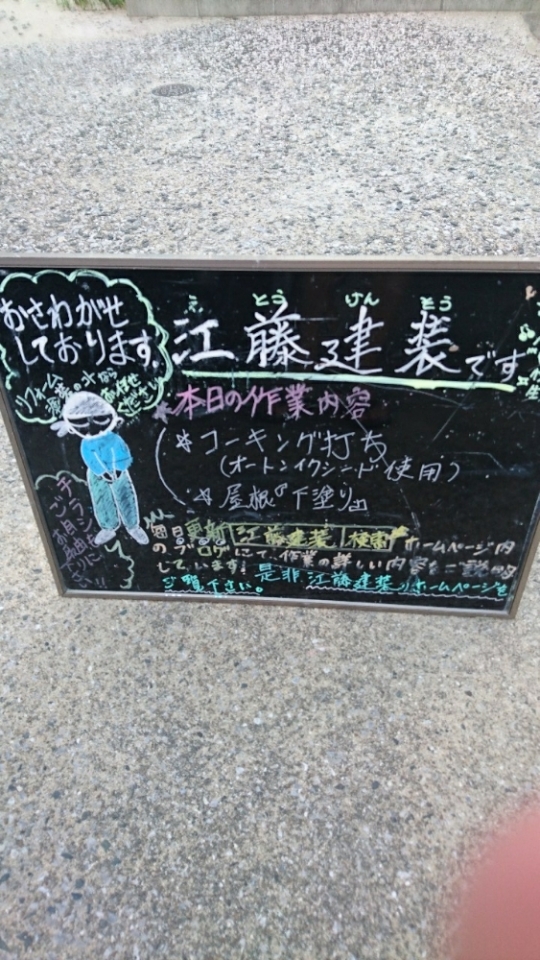 おさわがせ
しております。
え とう けん そう
江藤建装です
本日の作業内容
＊コーキング打ち
(オートンイクシード使用)
＊屋根『下塗り』
チラシ
ご自由に
お取り
下さい!!
毎日更新 江藤建装 検索 ホームページ内
のブログにて、作業の詳しい内容をご説明
しています！是非江藤建装のホームページを
ご覧下さい。